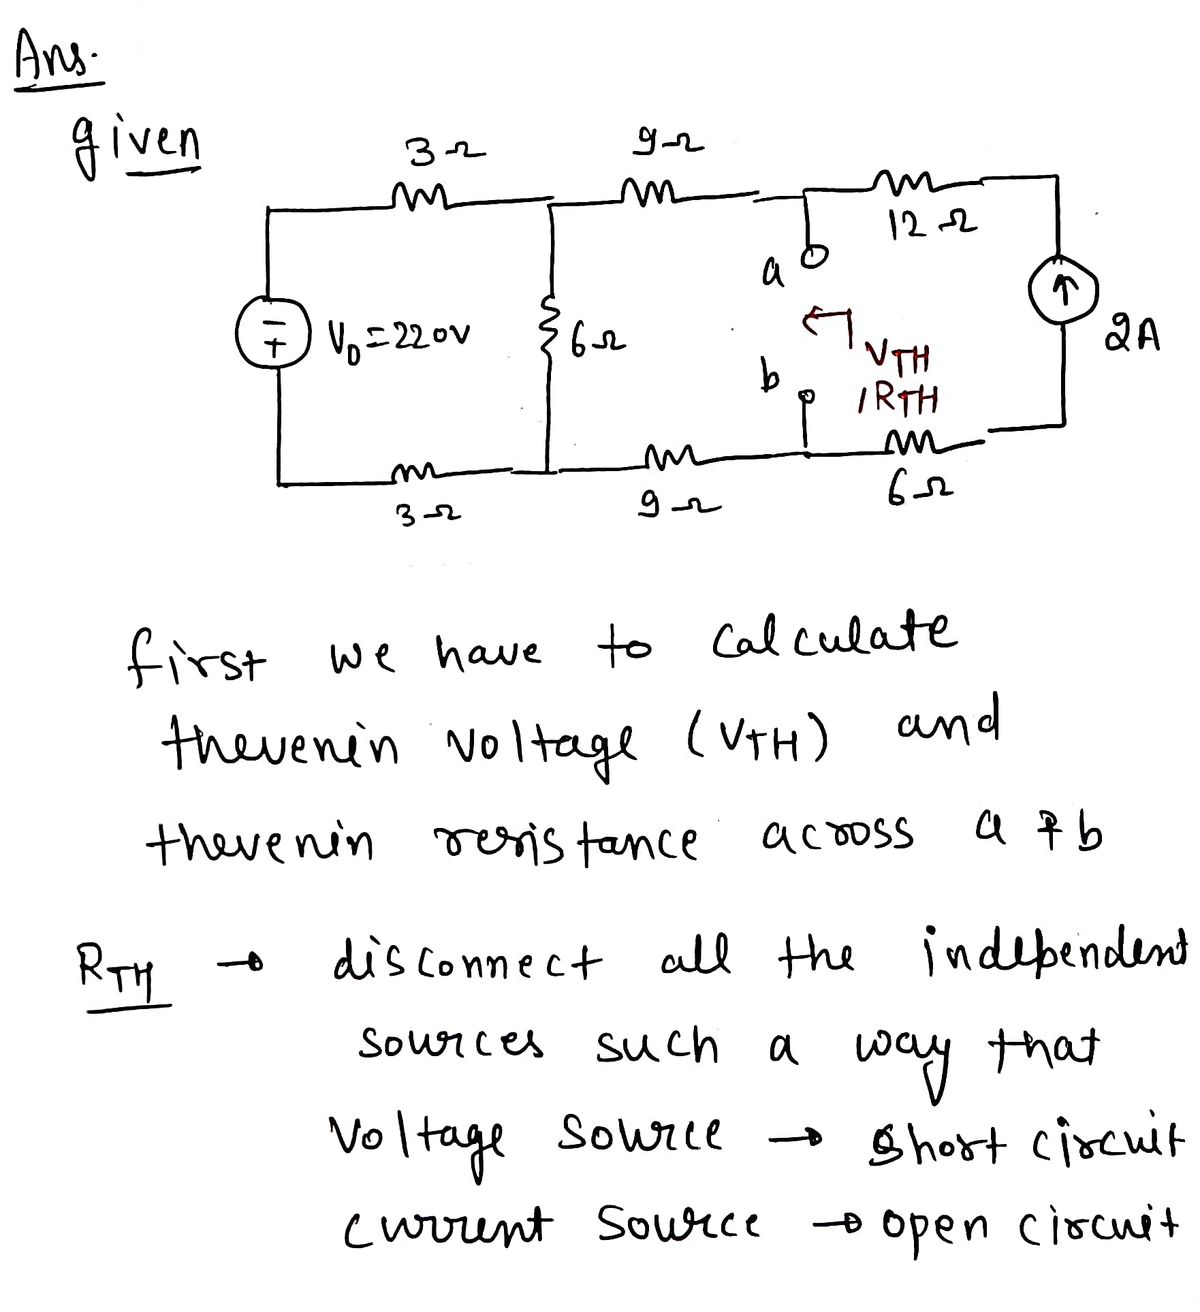 Ans.
given
3Ω
9Ω
12Ω
a
- +
V₀=220V
6Ω
↑
2A
VTH
b
/RTH
3Ω
9Ω
6Ω
first we have to calculate
thevenin voltage (VTH) and
thevenin resistance across a & b
RTH → disconnect all the independent
sources such a way that
Voltage source → short circuit
current source → open circuit